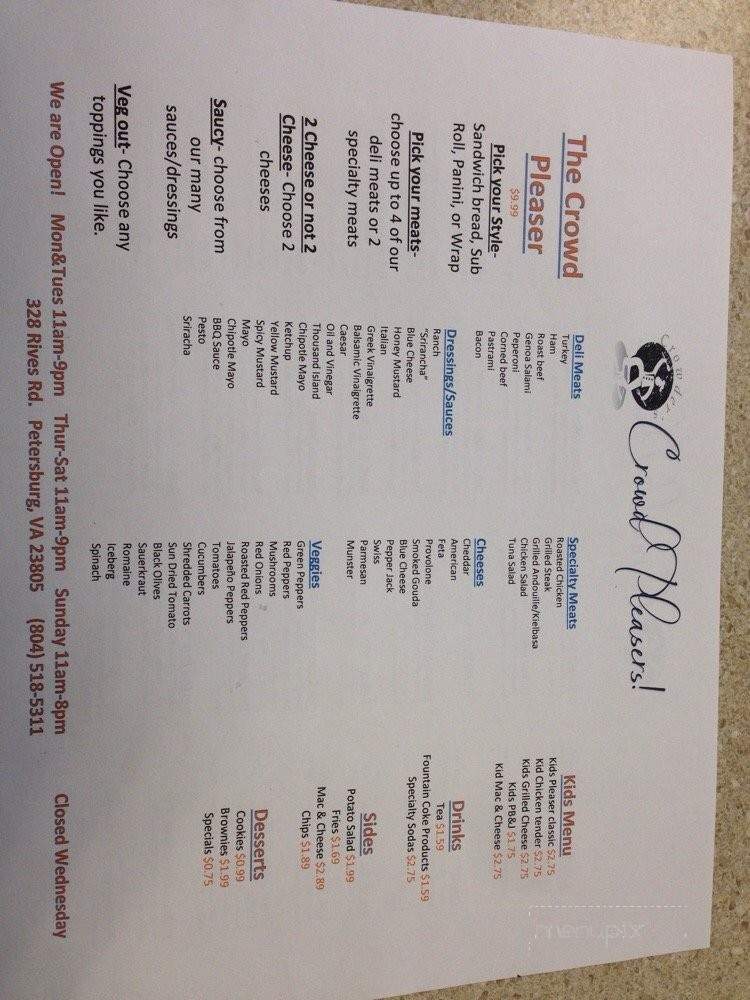 Crowd Pleasers!
The Crowd
Pleaser
$9.99
Pick your Style-
Sandwich bread, Sub
Roll, Panini, or Wrap
Pick your meats-
choose up to 4 of our
deli meats or 2
specialty meats
2 Cheese or not 2
Cheese- Choose 2
cheeses
Saucy- choose from
our many
sauces/dressings
Veg out- Choose any
toppings you like.
Deli Meats
Turkey
Ham
Roast beef
Genoa Salami
Peperoni
Corned beef
Pastrami
Bacon
Dressings/Sauces
Ranch
"Srirancha"
Blue Cheese
Honey Mustard
Italian
Greek Vinaigrette
Balsamic Vinaigrette
Caesar
Oil and Vinegar
Thousand Island
Chipotle Mayo
Ketchup
Yellow Mustard
Spicy Mustard
Mayo
Chipotle Mayo
BBQ Sauce
Pesto
Sriracha
Specialty Meats
Roasted Chicken
Grilled Steak
Grilled Andouille/Kielbasa
Chicken Salad
Tuna Salad
Cheeses
Cheddar
American
Feta
Provolone
Smoked Gouda
Blue Cheese
Pepper Jack
Swiss
Parmesan
Munster
Veggies
Green Peppers
Red Peppers
Mushrooms
Red Onions
Roasted Red Peppers
Jalapeño Peppers
Tomatoes
Cucumbers
Shredded Carrots
Sun Dried Tomato
Black Olives
Sauerkraut
Romaine
Iceberg
Spinach
Kids Menu
Kids Pleaser classic $2.75
Kid Chicken tender $2.75
Kids Grilled Cheese $2.75
Kids PB&J $1.75
Kid Mac & Cheese $2.75
Drinks
Tea $1.59
Fountain Coke Products $1.59
Specialty Sodas $2.75
Sides
Potato Salad $1.99
Fries $1.69
Mac & Cheese $2.89
Chips $1.89
Desserts
Cookies $0.99
Brownies $1.99
Specials $0.75
We are Open! Mon&Tues 11am-9pm Thur-Sat 11am-9pm Sunday 11am-8pm Closed Wednesday
328 Rives Rd. Petersburg, VA 23805 (804) 518-5311
menupix